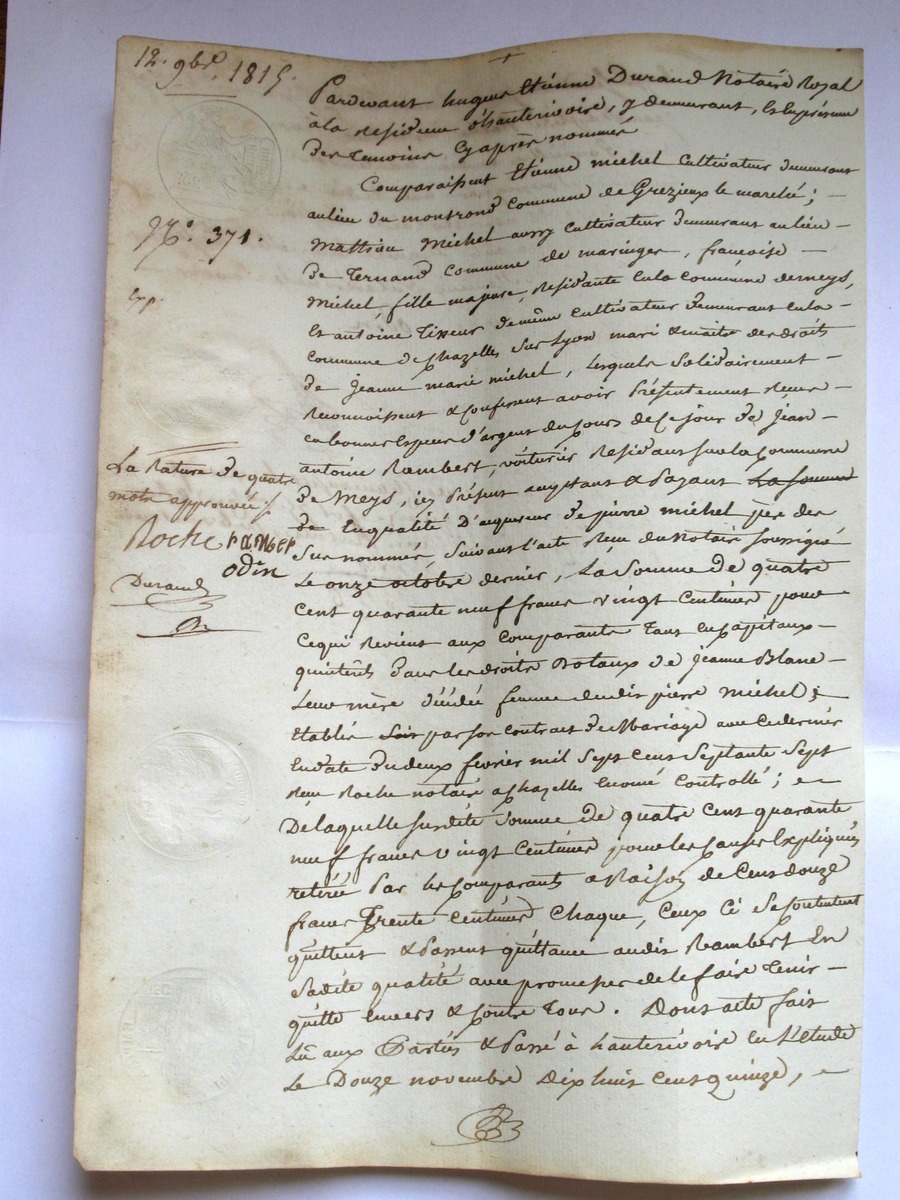 12. 9bre. 1815
Pardevant hugues Etiénne Durand Notaire Royal
à la Residence d'hauterivoire, y demeurant, En présence
des temoins Cy après nommés
Comparaissent Etiénne michel Cultivateur demeurant
au lieu du montrond Commune de Grezieux le marché; -
N°. 371.
Mathieu Michel aussy Cultivateur demeurant au lieu -
de ternand Commune de maringes, françoise -
Exp.
michel, fille majeure, Residante en la Commune de meys,
Et antoine tisseur de même Cultivateur demeurant en la -
Commune de Chazelles sur Lyon mari & maitre des droits
de jeanne marie michel, lesquels solidairement -
Reconnoissent & Confessent avoir Présentement Reçu -
en bonnes Especes d'argent du Cours de Ce jour de jean -
antoine Rambert, voiturier Residant sur la Commune
de Meys, icy Présent acceptant & Payant la somme
de En qualité d'acquereur de pierre michel père des
sus nommés, suivant l'acte Reçu du Notaire soussigné
Le onze octobre dernier, La somme de quatre
cent quarante neuf francs vingt Centimes pour
Ce qui Revient aux Comparants tant en Capitaux -
qu'intérêts dans les droits dotaux de jeanne Blanc -
Leur mère décédée femme dudit pierre michel;
Etablis par son Contrat de Mariage avec Ce dernier
En date du deux février mil Sept Cent Septante Sept
Reçu Roche notaire a Chazelles Controllé;
De laquelle susdite somme de quatre Cent quarante
neuf francs vingt Centimes pour les Causes Expliquées
retirée Par les Comparants a Raison de Cent douze
francs Trente Centimes Chaque, Ceux Ci se Contentent
quittent & Passent quittance audit Rambert En
sadite qualité avec promesse de le faire tenir -
quitte Envers & Contre Tous. Dont acte fait
Lû aux Parties & Passé à hauterivoire En L'étude
Le Douze novembre Dix huit Cent quinze,
La Rature de quatre
mots approuvée
Roche rambert
odin
Durand